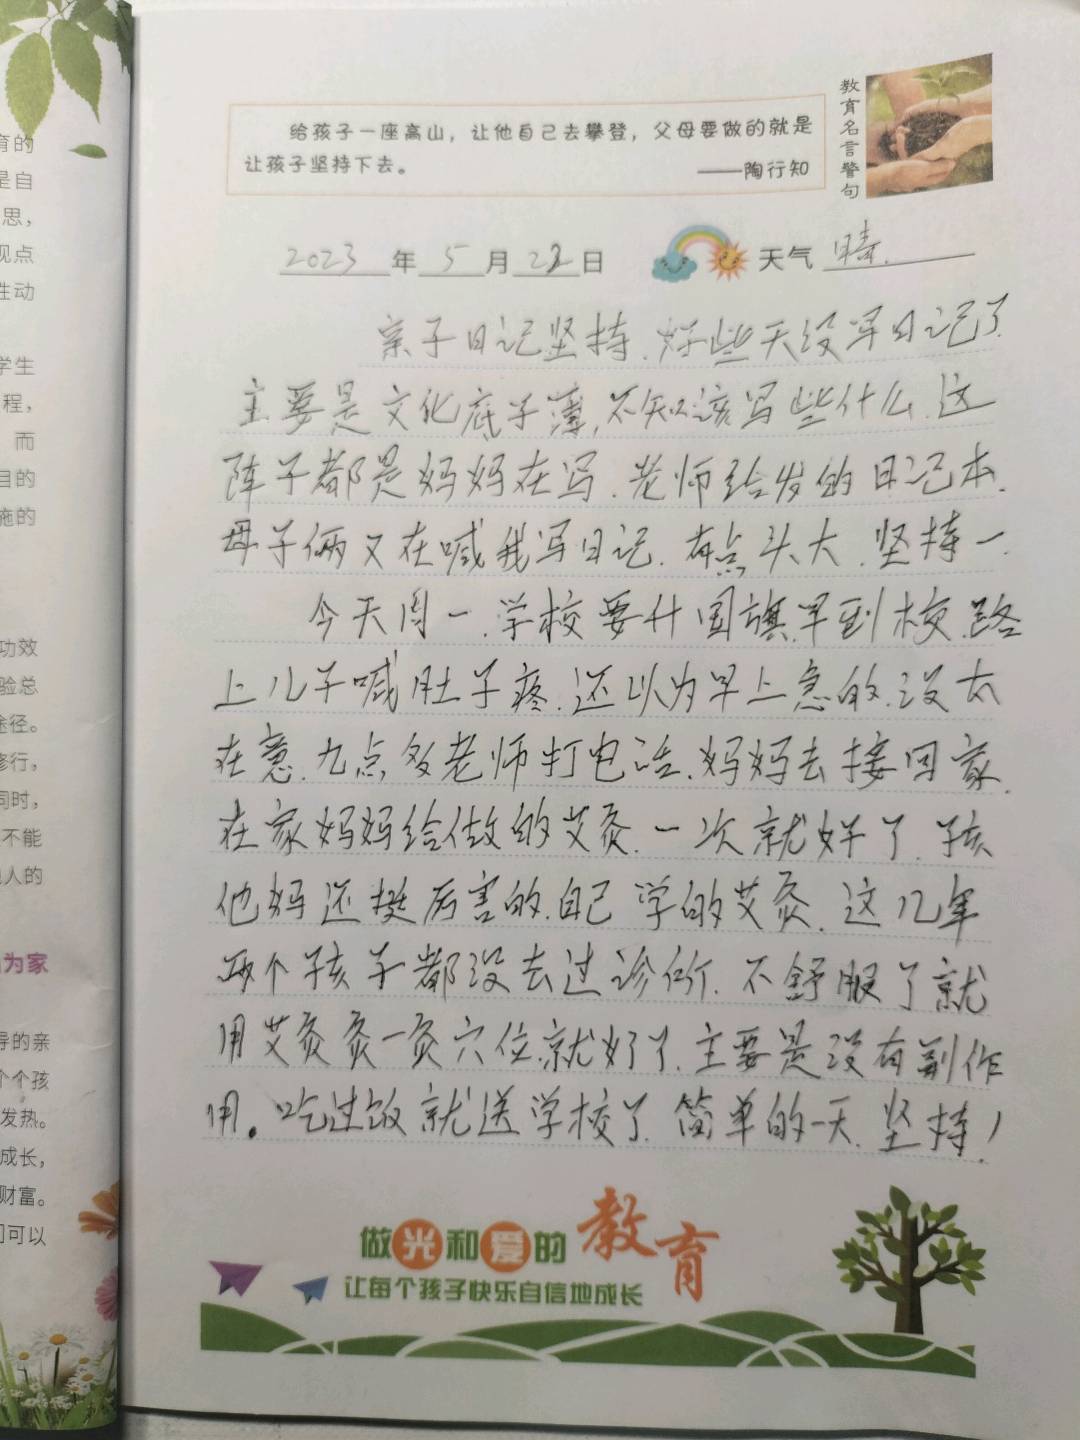 育的
是自
思，
观点
性动
学生
程，
而
目的
施的
功效
验总
途径。
修行，
同时，
不能
人的
为家
导的亲
个个孩
发热。
成长，
财富。
们可以
给孩子一座高山，让他自己去攀登，父母要做的就是
让孩子坚持下去。
——陶行知
教育名言警句
2023年5月22日
天气 晴.
亲子日记坚持.好些天没写日记了.
主要是文化底子薄,不知该写些什么.这
阵子都是妈妈在写.老师给发的日记本.
母子俩又在喊我写日记.有点头大.坚持一.
今天周一.学校要升国旗.早到校.路
上儿子喊肚子疼.还以为早上急的.没太
在意.九点多老师打电话.妈妈去接回家.
在家妈妈给做的艾灸.一次就好了.孩
他妈还挺厉害的.自己学的艾灸.这几年
两个孩子都没去过诊所.不舒服了就
用艾灸灸一灸穴位.就好了.主要是没有副作
用。吃过饭就送学校了.简单的一天.坚持!
做光和爱的教育
让每个孩子快乐自信地成长